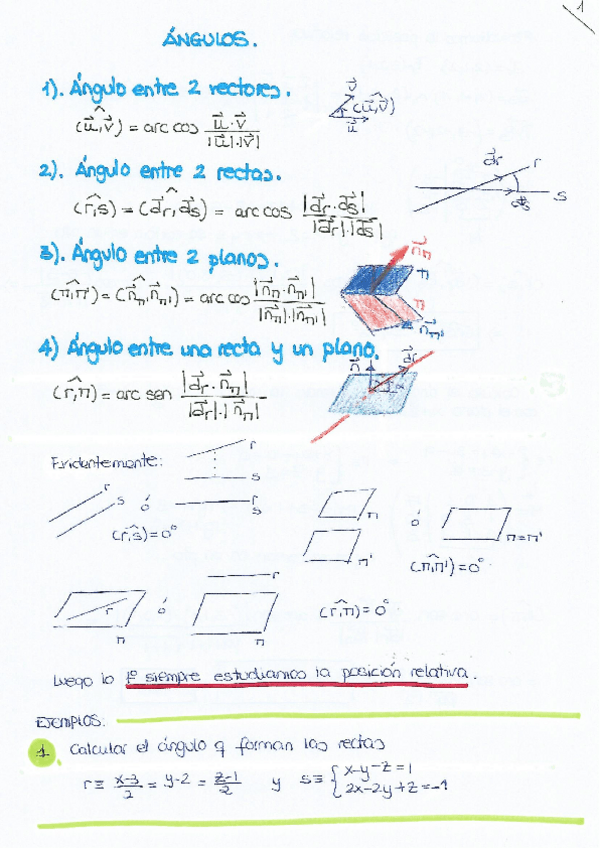 1
ÁNGULOS.
1). Ángulo entre 2 vectores.
(u⃗,v⃗) = arc cos u⃗·v⃗ / |u⃗|·|v⃗|
v⃗
(u⃗,v⃗)
u⃗
2). Ángulo entre 2 rectas.
(r,s) = (d⃗r,d⃗s) = arc cos |d⃗r·d⃗s| / |d⃗r|·|d⃗s|
d⃗r r
d⃗s s
3). Ángulo entre 2 planos.
(π,π') = (n⃗π,n⃗π') = arc cos |n⃗π·n⃗π'| / |n⃗π|·|n⃗π'|
n⃗π
n⃗π'
4) Ángulo entre una recta y un plano.
(r,π) = arc sen |d⃗r·n⃗π| / |d⃗r|·|n⃗π|
n⃗ d⃗r
Evidentemente:
r
s
r s ó r
s
(r,s)=0°
π ó π=π'
π'
(π,π')=0°
r
r ó
π π
(r,π)=0°
Luego lo 1º siempre estudiamos la posición relativa.
EJEMPLOS:
1 Calcular el ángulo q forman las rectas
r≡ x-3/2 = y-2 = z-1/2 y s≡ { x-y-z=1
2x-2y+z=-1